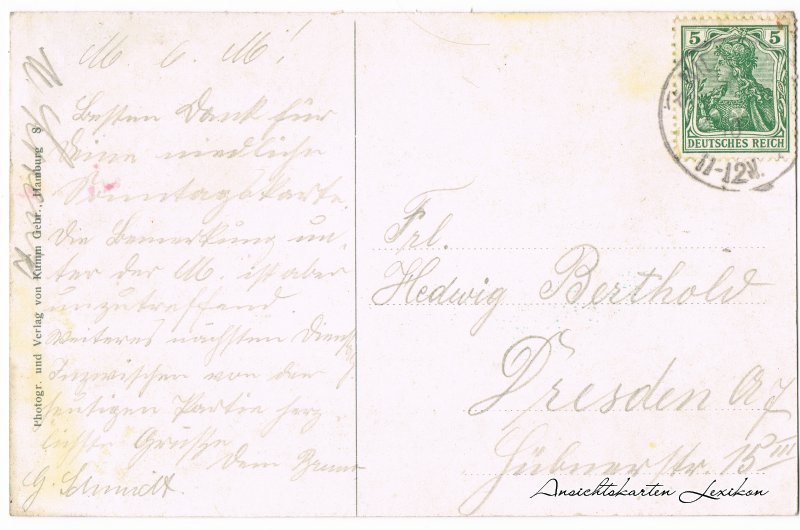 M. l. M!
Besten Dank für
Deine niedliche
Sonntagskarte.
Die Bemerkung un-
ter der M. ist aber
unzutreffend.
Weiteres nächsten Dienstg.
Inzwischen von der
heutigen Partie herz-
lichste Grüsse
Dein Bruno
G. Schmidt.
Photogr. und Verlag von Kumm Gebr., Hamburg 8
5 5
DEUTSCHES REICH
11-12V.
Frl.
Hedwig Berthold
Dresden A/
Hübnerstr. 15 III
Ansichtskarten Lexikon